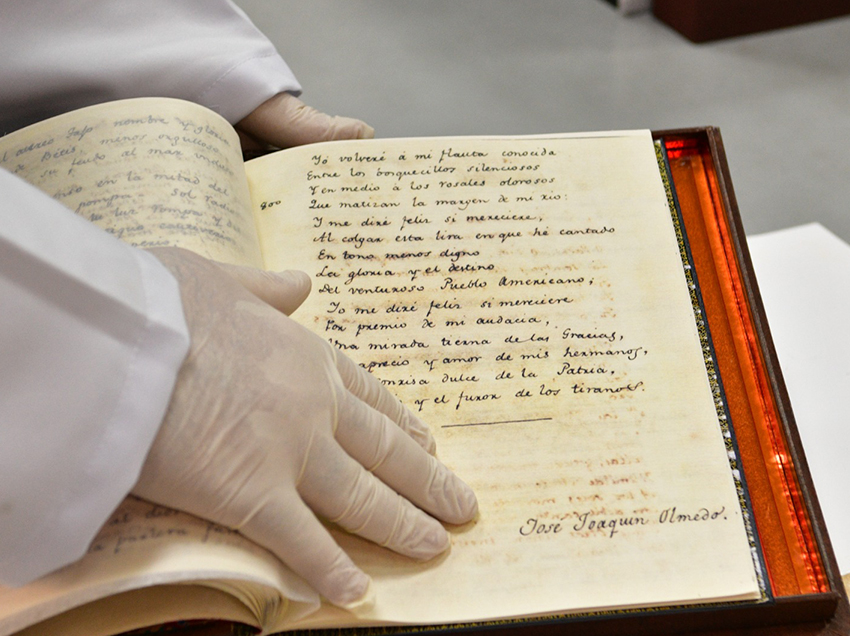 nombre y gloria
de Bétis, menos orgulloso
al mar
en la mitad del
pompa sol
Yó volveré á mi flauta conocida
Entre los bosquecillos silenciosos
Y en medio á los rosales olorosos
900 Que matizan la margen de mi rio:
Y me diré feliz si mereciere,
Al colgar esta lira en que hé cantado
En tono menos digno
La gloria y el destino
Del venturoso Pueblo Americano;
Yo me diré feliz si mereciere
Por premio de mi audacia,
Una mirada tierna de las Gracias,
aprecio y amor de mis hermanos,
dulce de la Patria,
y el furor de los tiranos.
José Joaquin Olmedo.